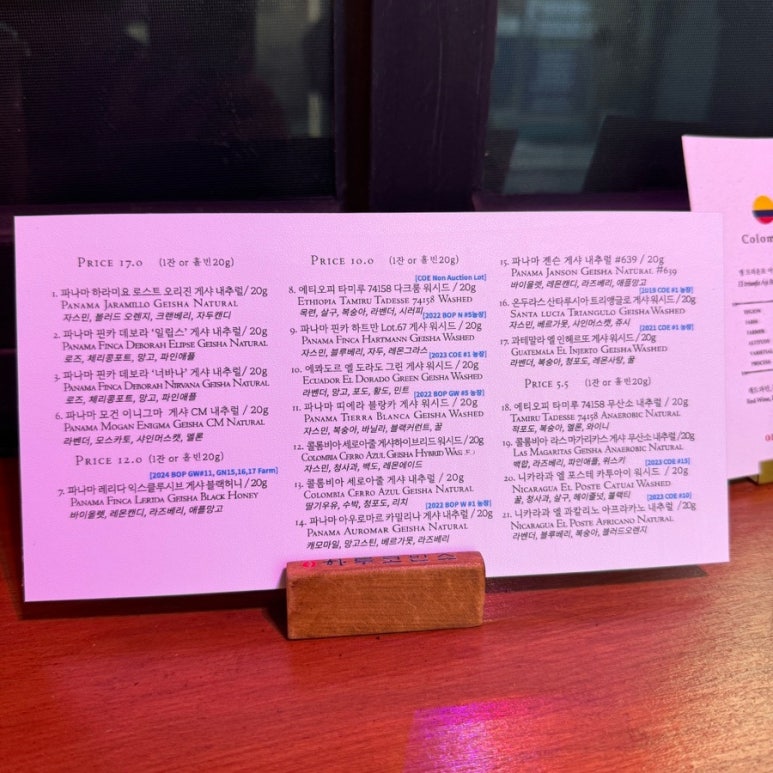 PRICE 17.0 (1잔 or 홀빈20g)
1. 파나마 하라미요 로스트 오리진 게샤 내추럴/ 20g
PANAMA JARAMILLO GEISHA NATURAL
자스민, 블러드 오렌지, 크랜베리, 자두캔디
2. 파나마 핀카 데보라 '일립스' 게샤 내추럴/ 20g
PANAMA FINCA DEBORAH ELIPSE GEISHA NATURAL
로즈, 체리콩포트, 망고, 파인애플
3. 파나마 핀카 데보라 '너바나' 게샤 내추럴/ 20g
PANAMA FINCA DEBORAH NIRVANA GEISHA NATURAL
로즈, 체리콩포트, 망고, 파인애플
6. 파나마 모건 이니그마 게샤 CM 내추럴 / 20g
PANAMA MOGAN ENIGMA GEISHA CM NATURAL
라벤더, 모스카토, 샤인머스캣, 멜론
PRICE 12.0 (1잔 or 홀빈20g)
[2024 BOP GW#11, GN15,16,17 Farm]
7. 파나마 레리다 익스클루시브 게샤 블랙허니 / 20g
PANAMA FINCA LERIDA GEISHA BLACK HONEY
바이올렛, 레몬캔디, 라즈베리, 애플망고
PRICE 10.0 (1잔 or 홀빈20g)
[COE Non Auction Lot]
8. 에티오피 타미루 74158 다크룸 워시드 / 20g
ETHIOPIA TAMIRU TADESSE 74158 WASHED
목련, 살구, 복숭아, 라벤더, 시러피
[2022 BOP N #5농장]
9. 파나마 핀카 하트만 Lot.67 게샤 워시드 / 20g
PANAMA FINCA HARTMANN GEISHA WASHED
자스민, 블루베리, 자두, 레몬그라스
[2023 COE #1 농장]
10. 에콰도르 엘 도라도 그린 게샤 워시드 / 20g
ECUADOR EL DORADO GREEN GEISHA WASHED
라벤더, 망고, 포도, 황도, 민트
[2022 BOP GW #5 농장]
11. 파나마 띠에라 블랑카 게샤 워시드 / 20g
PANAMA TIERRA BLANCA GEISHA WASHED
자스민, 복숭아, 바닐라, 블랙커런트, 꿀
12. 콜롬비아 세로아줄 게샤하이브리드 워시드 / 20g
COLOMBIA CERRO AZUL GEISHA HYBRID
자스민, 청사과, 백도, 레몬에이드
13. 콜롬비아 세로아줄 게샤 내추럴 / 20g
COLOMBIA CERRO AZUL GEISHA NATURAL
딸기우유, 수박, 청포도, 리치
[2022 BOP W #1 농장]
14. 파나마 아우로마르 카밀리나 게샤 내추럴 / 20g
PANAMA AUROMAR GEISHA NATURAL
캐모마일, 망고스틴, 베르가못, 라즈베리
15. 파나마 젠슨 게샤 내추럴 #639 / 20g
PANAMA JANSON GEISHA NATURAL #639
바이올렛, 레몬캔디, 라즈베리, 애플망고
[2019 COE #1 농장]
16. 온두라스 산타루시아 트리앵글로 게샤 워시드 / 20g
SANTA LUCIA TRIANGULO GEISHA WASHED
자스민, 베르가못, 샤인머스캣, 쥬시
[2021 COE #1 농장]
17. 과테말라 엘 인헤르또 게샤 워시드 / 20g
GUATEMALA EL INJERTO GEISHA WASHED
라벤더, 복숭아, 청포도, 레몬사탕, 꿀
PRICE 5.5 (1잔 or 홀빈20g)
18. 에티오피 타미루 74158 무산소 내추럴 / 20g
TAMIRU TADESSE 74158 ANAEROBIC NATURAL
적포도, 복숭아, 멜론, 와이니
19. 콜롬비아 라스 마가리카스 게샤 무산소 내추럴/ 20g
LAS MAGARITAS GEISHA ANAEROBIC NATURAL
백합, 라즈베리, 파인애플, 위스키
[2023 COE #15]
20. 니카라과 엘 포스테 카투아이 워시드 / 20g
NICARAGUA EL POSTE CATUAI WASHED
꿀, 청사과, 살구, 헤이즐넛, 블랙티
[2023 COE #20]
21. 니카라과 엘 과칼리노 아프라카노 내추럴 /20g
NICARAGUA EL POSTE AFRICANO NATURAL
라벤더, 블루베리, 복숭아, 블러드오렌지
Colom
REGION
FARM